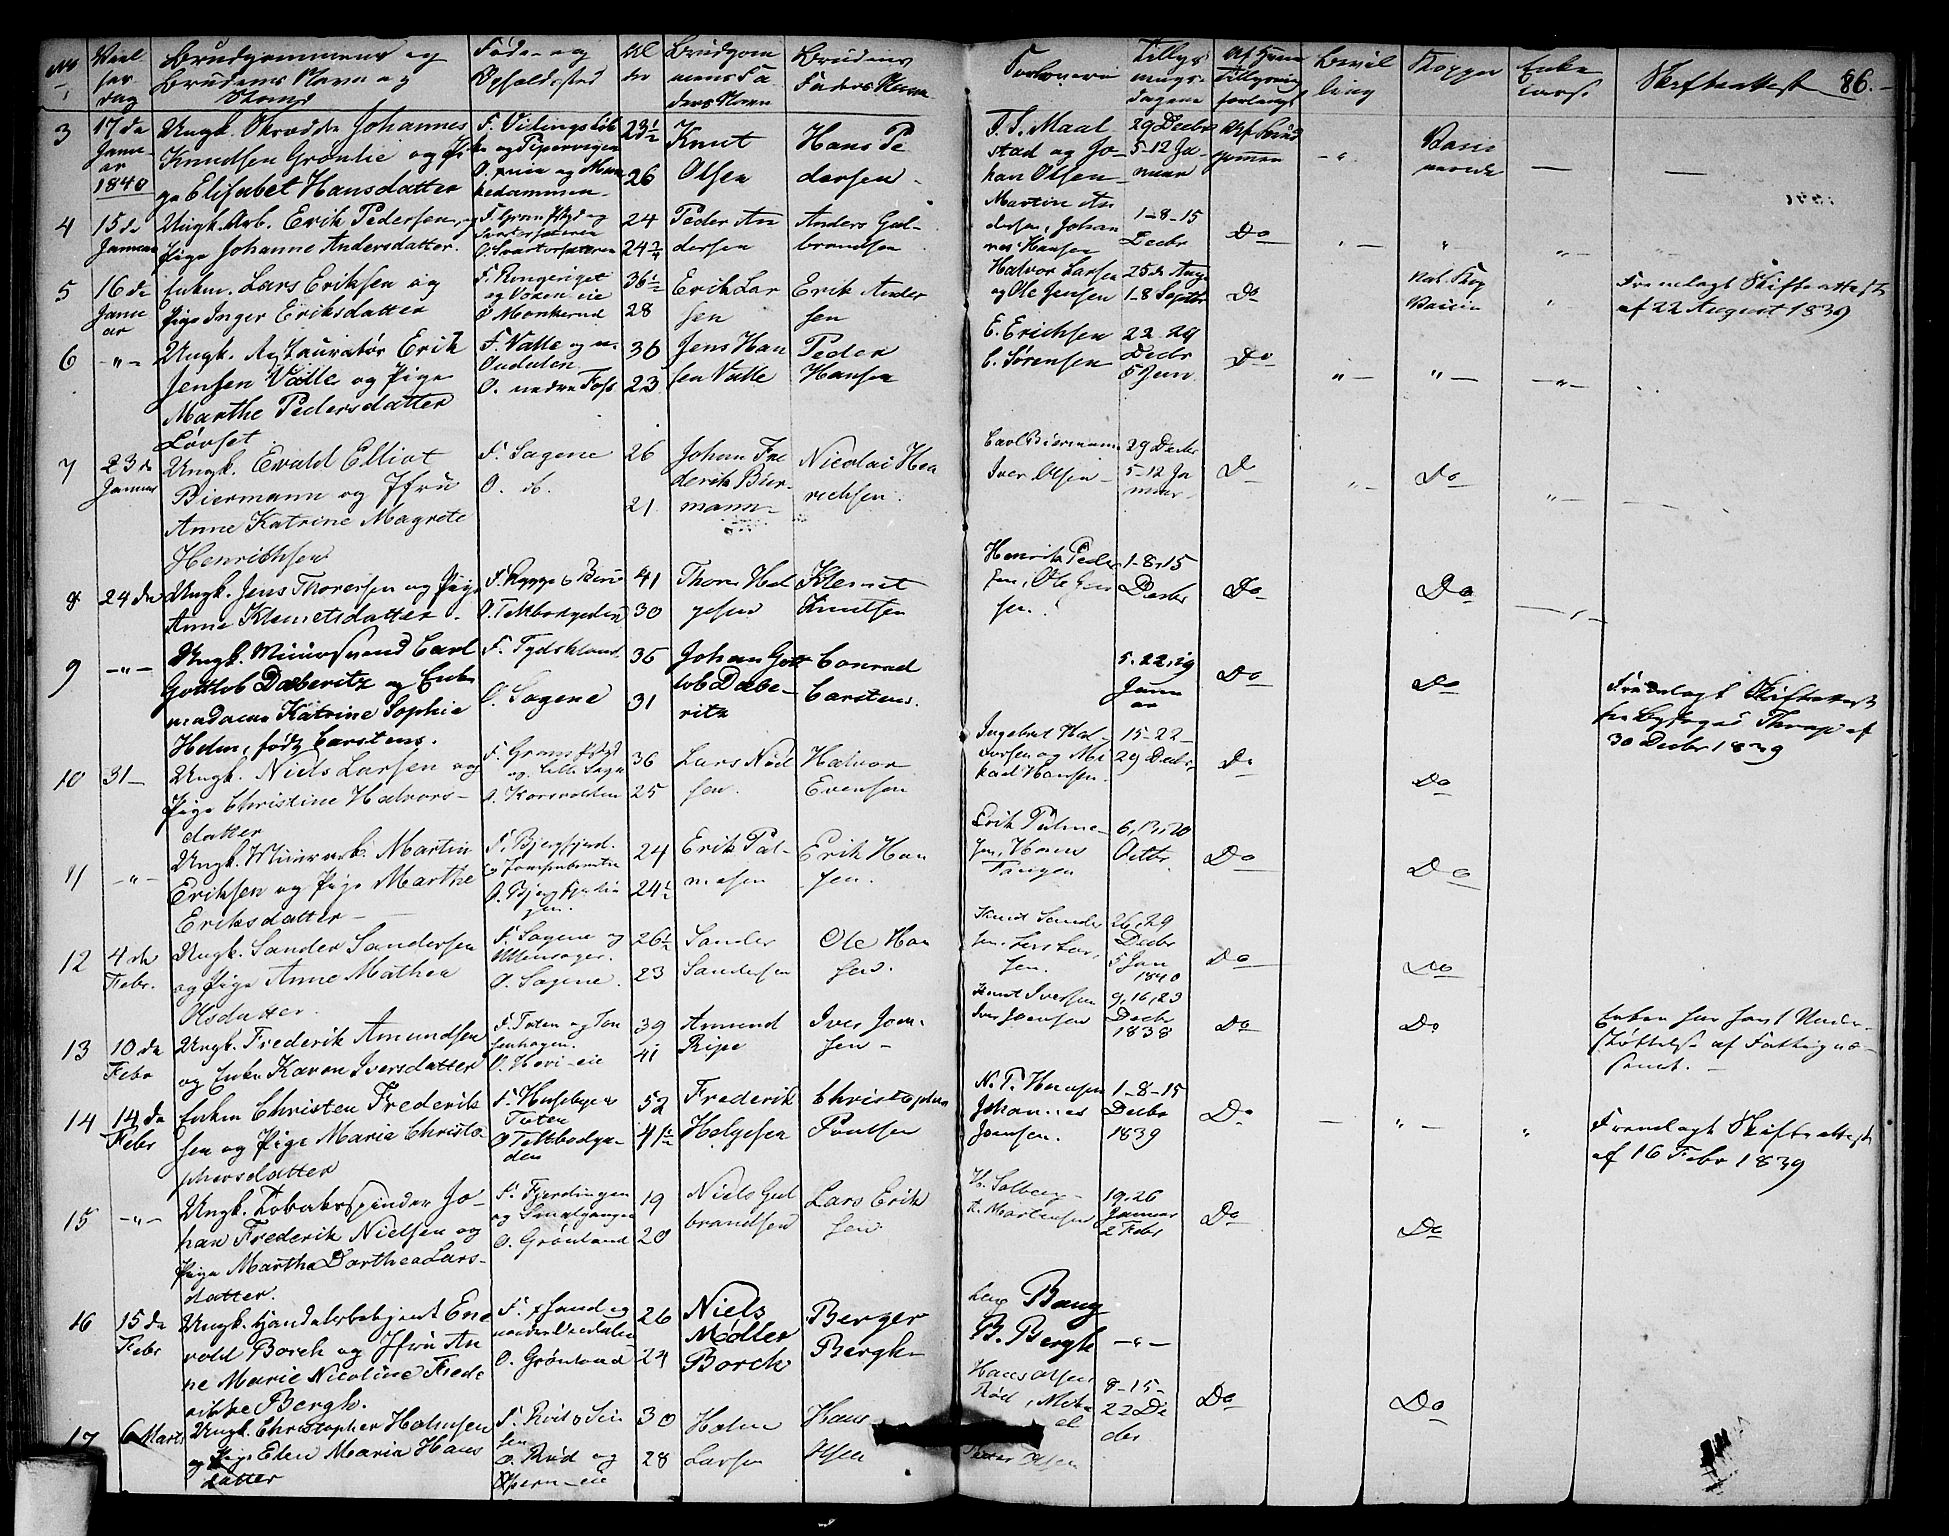 No Viel ser dag Brudgommens og Brudens Navn og Stand Føde- og Opholdssted Al der Brudgom mens Fa ders Navn Brudens Faders Navn Forlovere Tillys nings dagene Af hvem Tillysning forlangt Bevil ling Kopper Enke Skifteattest 86.
3 17 de Januar 1840 Ungk. Johannes Knudsen Grønlie og Pige Elisabet Hansdatter
23½ 26 Knut Olsen Hans Pedersen
Maalstad og Johan Olsen 29 Decbr 5-12 Januar
4 15 de Januar Ungk. Arb. Erik Pedersen og Pige Johanne Andersdatter
24 Peder Andersen Anders Gulbrandsen
Martin Andersen, Johannes Hansen 1-8-15 Decbr Do
5 16 de Januar Enkem. Lars Eriksen og Pige Inger Eriksdatter
F. Ringeriget 36½ 28 Erik Larsen Erik Andersen
Halvor Larsen og Ole Jensen 25 de Aug 1-8 Septbr Do Fremlagt Skifteattest af 22 August 1839
6 -"- Ungk. Erik Jensen Valle og Pige Marthe Pedersdatter Løvset
F. Valle og O. nedre Foss 36 23 Jens Hansen Valle Peder Hansen
E. Erichsen C. Sørensen 22. 29 Decbr 5 Jan Do
7 23 de Januar Ungk. Evald Elliot Biermann og Jfru Anne Katrine Magrete Henrichsen
F. Sagene O. do. 26 21 Johan Frederik Biermann Nicolai Henrichsen
Carl Biermann Iver Olsen 29 Decbr 5-12 Januar Do Do
8 24 de Ungk. Jens Thoresen og Pige Anne Klemetsdatter
F. Rygge O. Teltbodgaden 41 30 Thore Helgesen Klemet Knutsen
Henrik Pedersen, Ole Hansen 1-8-15 Decbr Do Do
9 -"- Ungk. Muursvend Carl Gottlob Dæberitz og Enkemadame Katrine Sophie Holm, født Carstens.
F. Tydskland O. Sagene 36 31 Johan Gottlob Dæberitz Conrad Carstens.
5. 22. 29 Januar Do Do Fremlagt Skifteattest 30 Decbr 1839
10 31- Ungk. Niels Larsen og Pige Christine Halvorsdatter
36 25 Lars Nielsen Halvor Evensen
Ingebret Halvorsen og Mikael Hansen 15-22-29 Decbr Do Do
11 -"- Ungk. Martin Eriksen og Pige Marthe Eriksdatter
24 24½ Erik Palmesen Erik Hansen
Erik Palmesen, Hans Tangen 6, 13, 20 Octbr Do Do
12 4 de Febr. Ungk. Sander Sandersen og Pige Anne Mathea Olsdatter
F. Sagene og Ullensager. O. Sagene. 26½ 23 Sander Sandersen Ole Hansen
Knud Sandersen, Lars Larsen. 26, 29 Decbr 5 Jan 1840 Do Do
13 10 de Febr Ungk. Frederik Amundsen og Enke Karen Iversdatter
F. Toten og Tonsenhagen. O. Hovi-eie 39 41 Amund Ripe Iver Joensen
Knut Iversen Iver Joensen 9, 16, 23 Decbr 1838 Do Do Enken har havt Understøttelse af Fattigvæsenet.
14 14 de Febr Enkem Christen Frederiksen og Pige Maria Christophersdatter
F. Toten O. Teltbodgaden 52 41½ Frederik Helgesen Christopher Poulsen
N. P. Hansen Johannes Joensen. 1-8-15 Decbr 1839 Do Fremlagt Skifteattest af 16 Febr 1839
15 -"- Ungk. Tobaksspinder Johan Frederik Nielsen og Pige Martha Dorthea Larsdatter.
F. Fjerdingen og Smalgangen O. Grønland 19 20 Niels Gulbrandsen Lars Eriksen
H. Solberg T. Mortensen 19, 26 Januar 2 Febr Do Do
16 15 de Febr Ungk. Handelsbetjent Enevold Borch og Jfru Anne Marie Nicoline Frederikke Bergh.
O. Grønland 26 24 Niels Møller Borch Berger Bergh
Bang B. Bergh -"-
17 6 Marts Ungk. Christopher Holmsen og Pige Elen Maria Hansdatter
O. Rød og 30 28 Holm Larsen Hans Olsen
Hans Olsen Rød, Peter Olsen 8-15-22 De Do Do